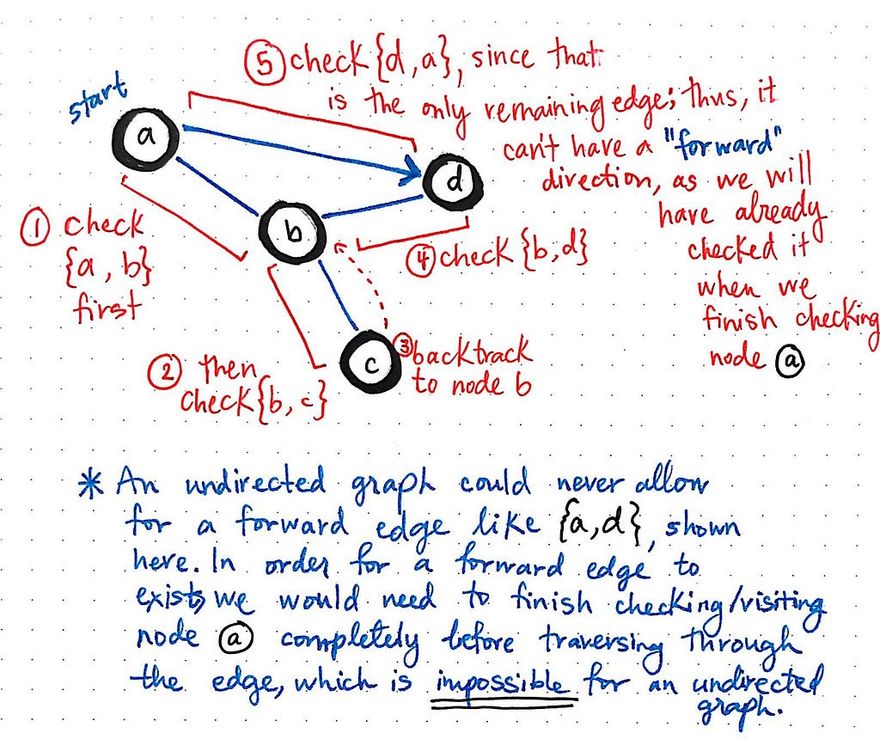 start
a
b
c
d
⑤ check {d,a}, since that
is the only remaining edge; thus, it
can't have a "forward"
direction, as we will
have already
checked it
when we
finish checking
node ⓐ
① check
{a, b}
first
② then
check {b, c}
③ backtrack
to node b
④ check {b,d}
* An undirected graph could never allow
for a forward edge like {a,d}, shown
here. In order for a forward edge to
exist, we would need to finish checking/visiting
node ⓐ completely before traversing through
the edge, which is impossible for an undirected
graph.